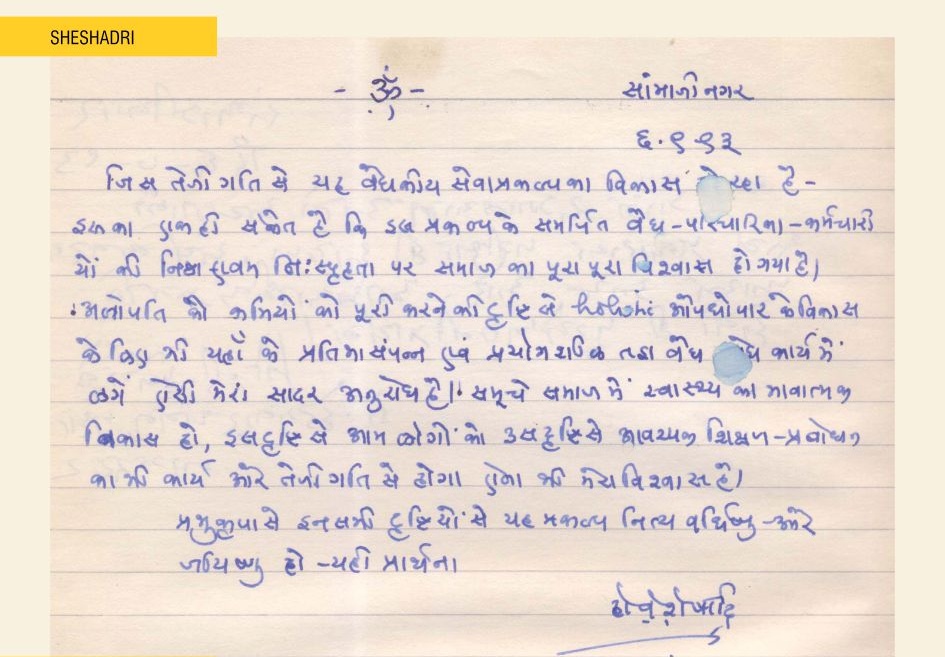 SHESHADRI
- ॐ -
सांभाजीनगर
६.९९३
जिस तेजी गति से यह वैद्यकीय सेवाप्रकल्पका विकास रहा है -
इसका एकही संकेत है कि इस प्रकल्पके समर्पित वैद्य - परिचारिका - कर्मचारी
यों की निष्ठा एवम निःस्पृहता पर समाज का पूरा पूरा विश्वास हो गया है।
अलोपति की कमियों को पूरी करने की दृष्टि से औषधोपार के विकास
के लिए भी यहाँ के प्रतिभासंपन्न एवं प्रयोगशील वैद्य कार्य में
लगें ऐसी मेरा सादर अनुरोध है। समूचे समाज में स्वास्थ्य का भावात्मक
विकास हो, इसदृष्टि से आम लोगों को उसदृष्टिसे आवश्यक शिक्षण - प्रबोधन
का भी कार्य और तेजी गति से होगा ऐसा भी मेरा विश्वास है।
प्रभुकृपासे इनसभी दृष्टियों से यह प्रकल्प नित्य वर्धिष्णु - और
जयिष्णु हो - यही प्रार्थना।